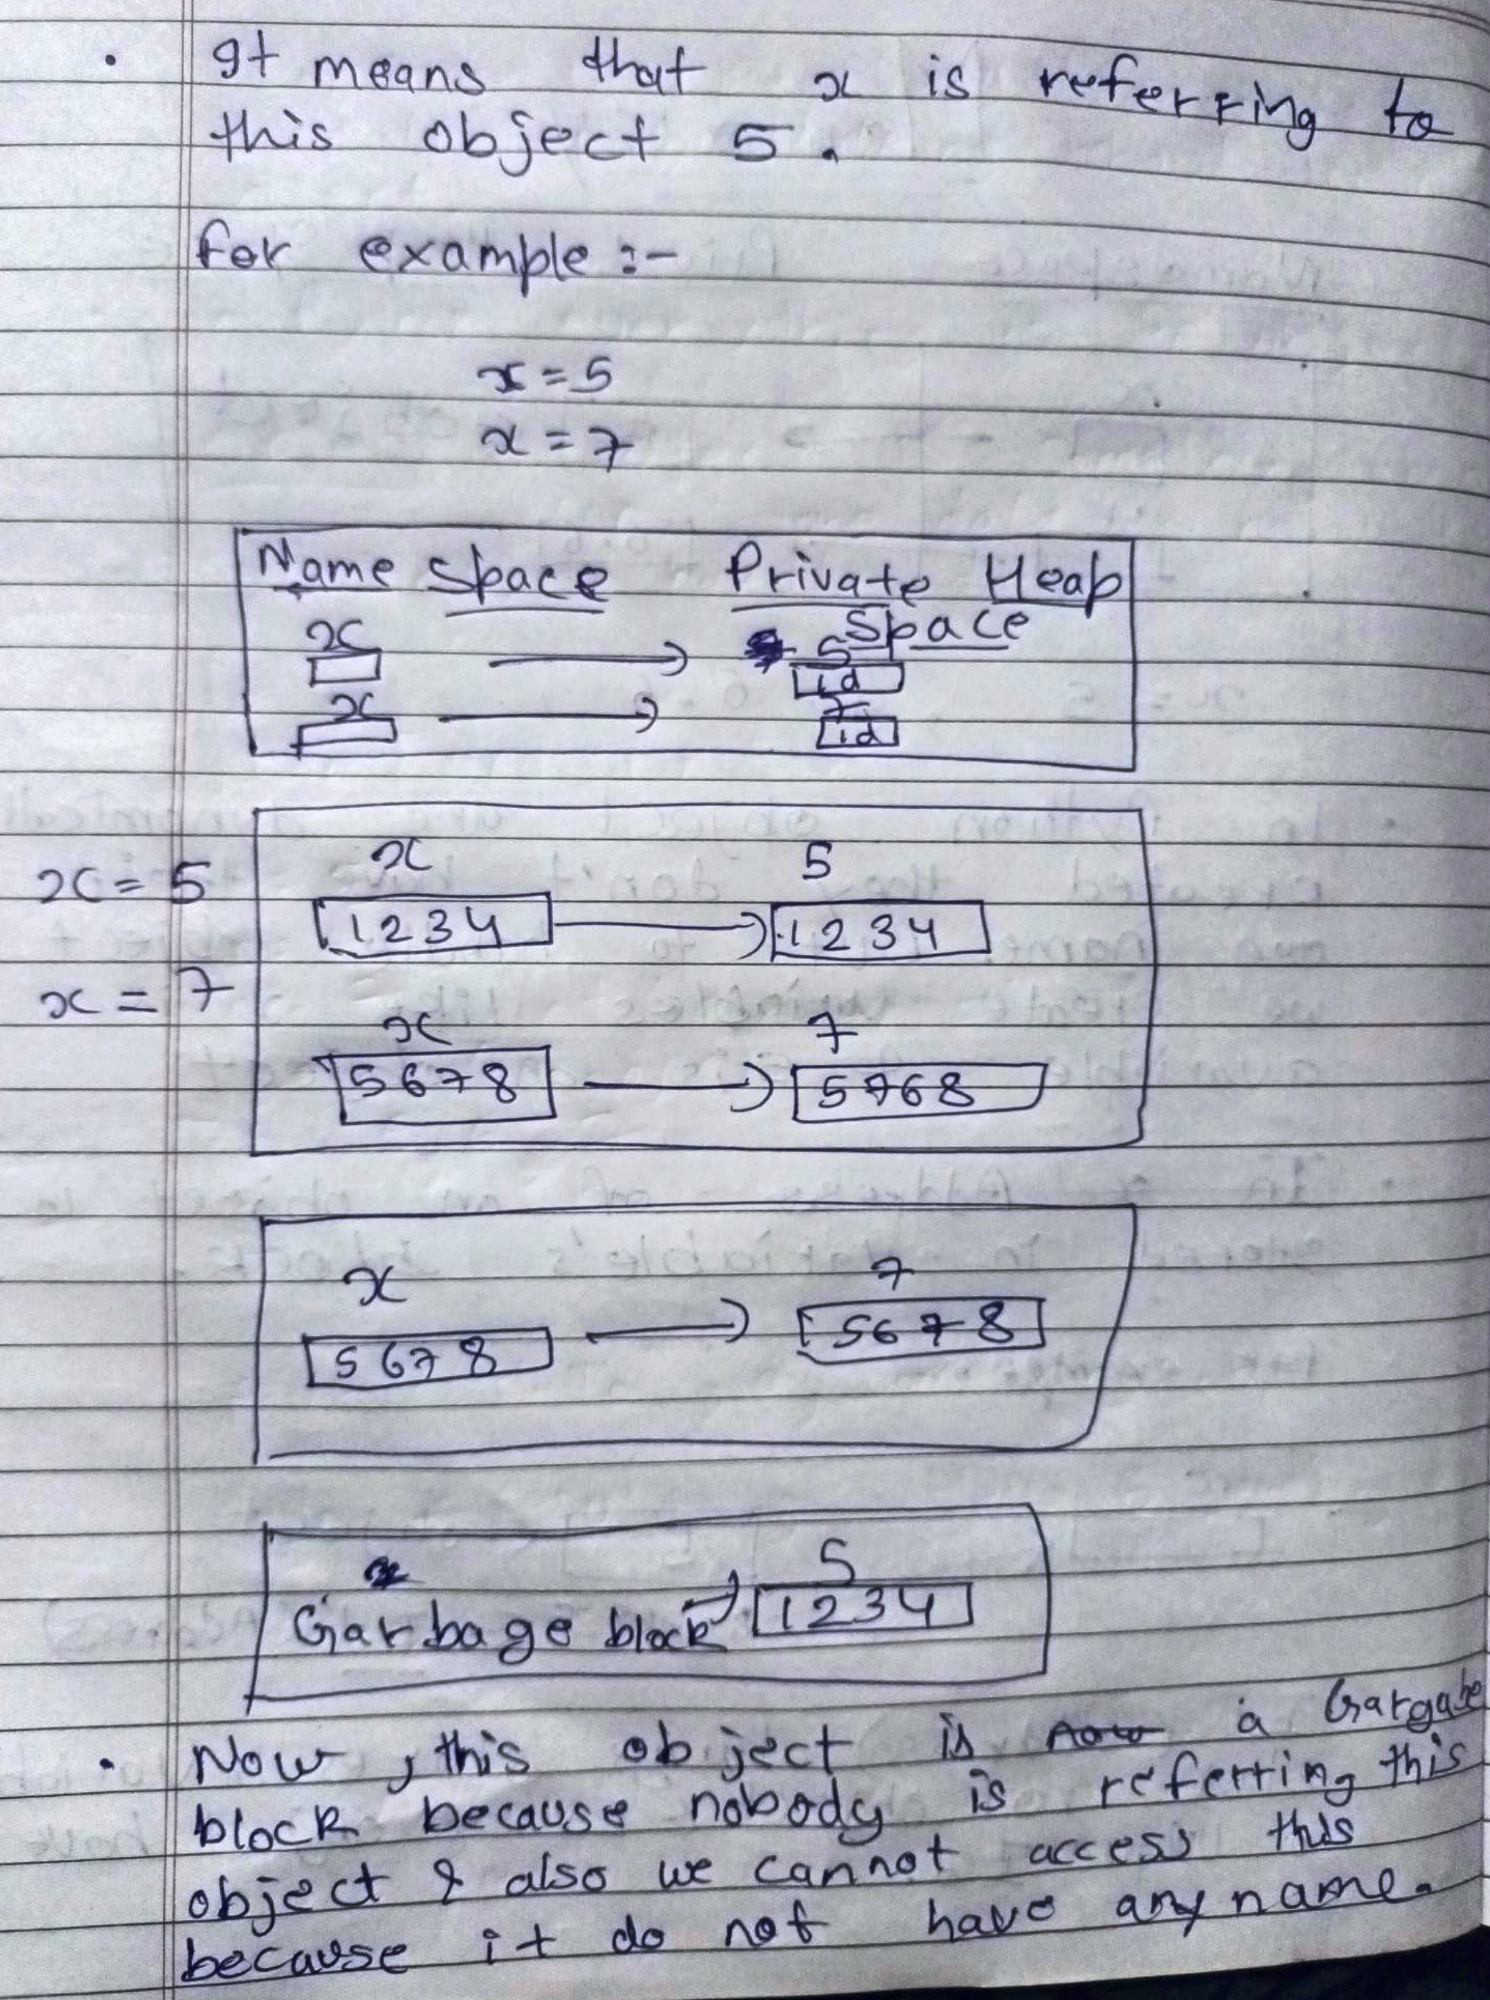 It means that x is referring to
this object 5.
for example :-
x = 5
x = 7
Name Space Private Heap
Space
x 5
id
x 7
id
x 5
x = 5
1234 1234
x = 7
x 7
5678 5768
x 7
5678 5678
5
Garbage block 1234
Now, this object is now a Gargabe
block because nobody is referring this
object & also we cannot access this
because it do not have any name.